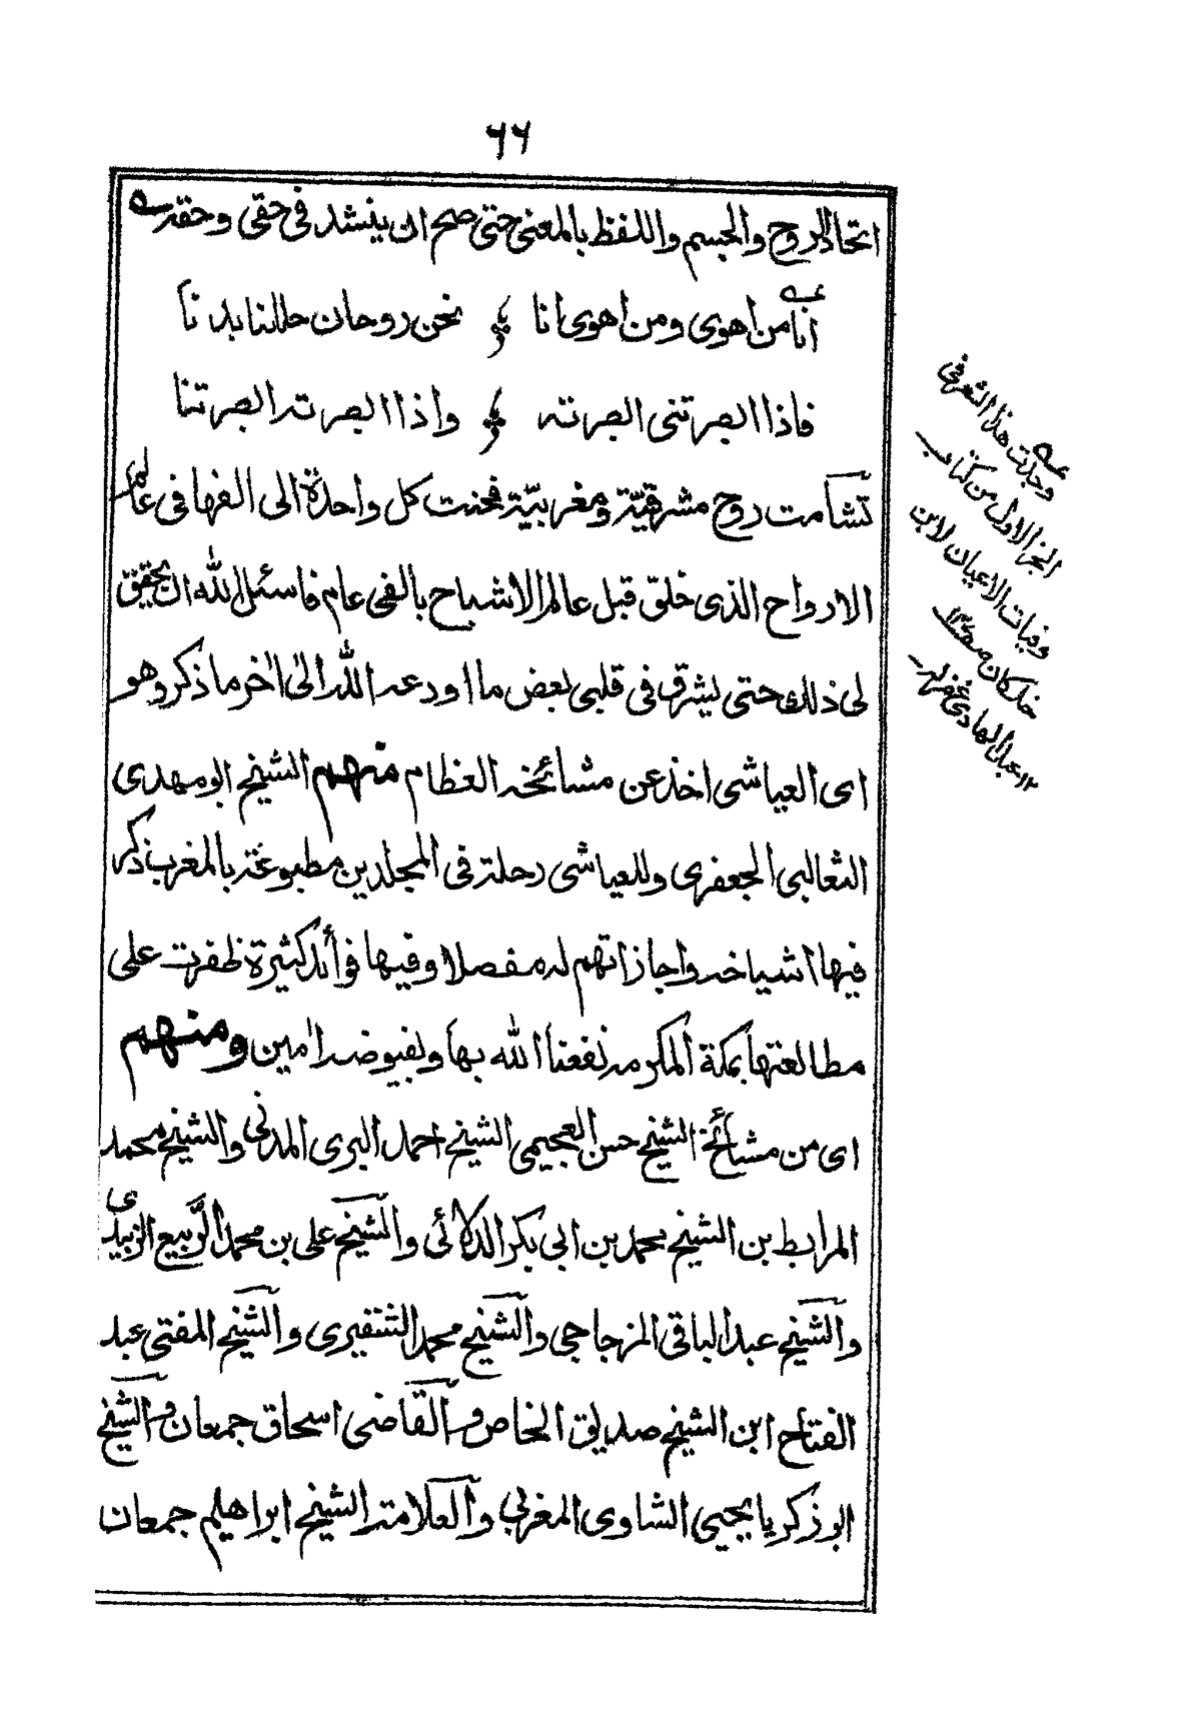 ٦٦
اتحاد الروح والجسم واللفظ بالمعنى حتى صح ان ينشد فى حقى وحقه
انا من اهوى ومن اهوى انا نحن روحان حللنا بدنا
فاذا ابصرتنى ابصرته واذا ابصرته ابصرتنا
تشآمت روح مشرقيّة ومغربيّة فحنت كل واحدة الى الفها فى عالم
الارواح الذى خلق قبل عالم الاشباح بالفى عام فاسئل الله ان يحقق
لى ذلك حتى يشرق فى قلبى بعض ما اودعه الله الى اخر ما ذكر وهو
اى العياشى اخذ عن مشائخه العظام منهم الشيخ ابو مهدى
الثعالبى الجعفرى وللعياشى رحلة فى المجلدين مطبوعة بالمغرب ذكر
فيها اشياخه واجازاتهم له مفصلا وفيها فوائد كثيرة ظفرت على
مطالعتها بمكة المكرمه نفعنا الله بها وبفيوضه امين ومنهم
اى من مشائخ الشيخ حسن العجيمى الشيخ احمد البرى المدنى والشيخ محمد
المرابط بن الشيخ محمد بن ابى بكر الدلائى والشيخ على بن محمد الرّبيع الزبيدى
والشيخ عبد الباقى المزجاجى والشيخ محمد الشنقيرى والشيخ المفتى عبد
الفتاح ابن الشيخ صديق الخاص والقاضى اسحاق جمعان والشيخ
ابو زكريا يحيى الشاوى المغربى والعلامة الشيخ ابراهيم جمعان
وجدت هذا الشعر فى
الجزء الاول من كتاب
وفيات الاعيان لابن
خلكان
عبد الهادى غفر له